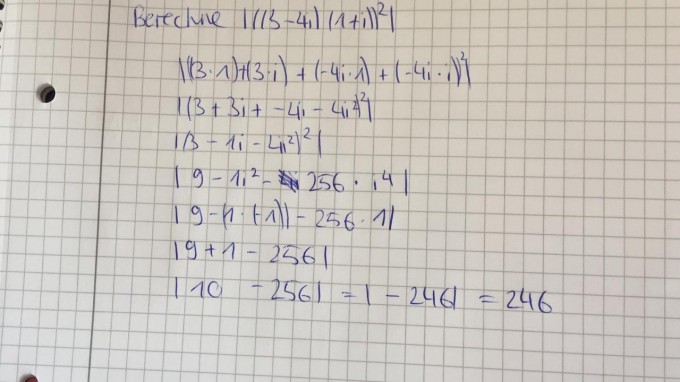 Berechne |((3-4i)(1+i))²|
|((3·1)+(3·i)+(-4i·1)+(-4i·i))²|
|(3+3i+-4i-4i²)²|
|(3-1i-4i²)²|
|9-1i²-256·i⁴|
|9-(1·(-1))-256·1|
|9+1-256|
|10 -256| =|-246| =246